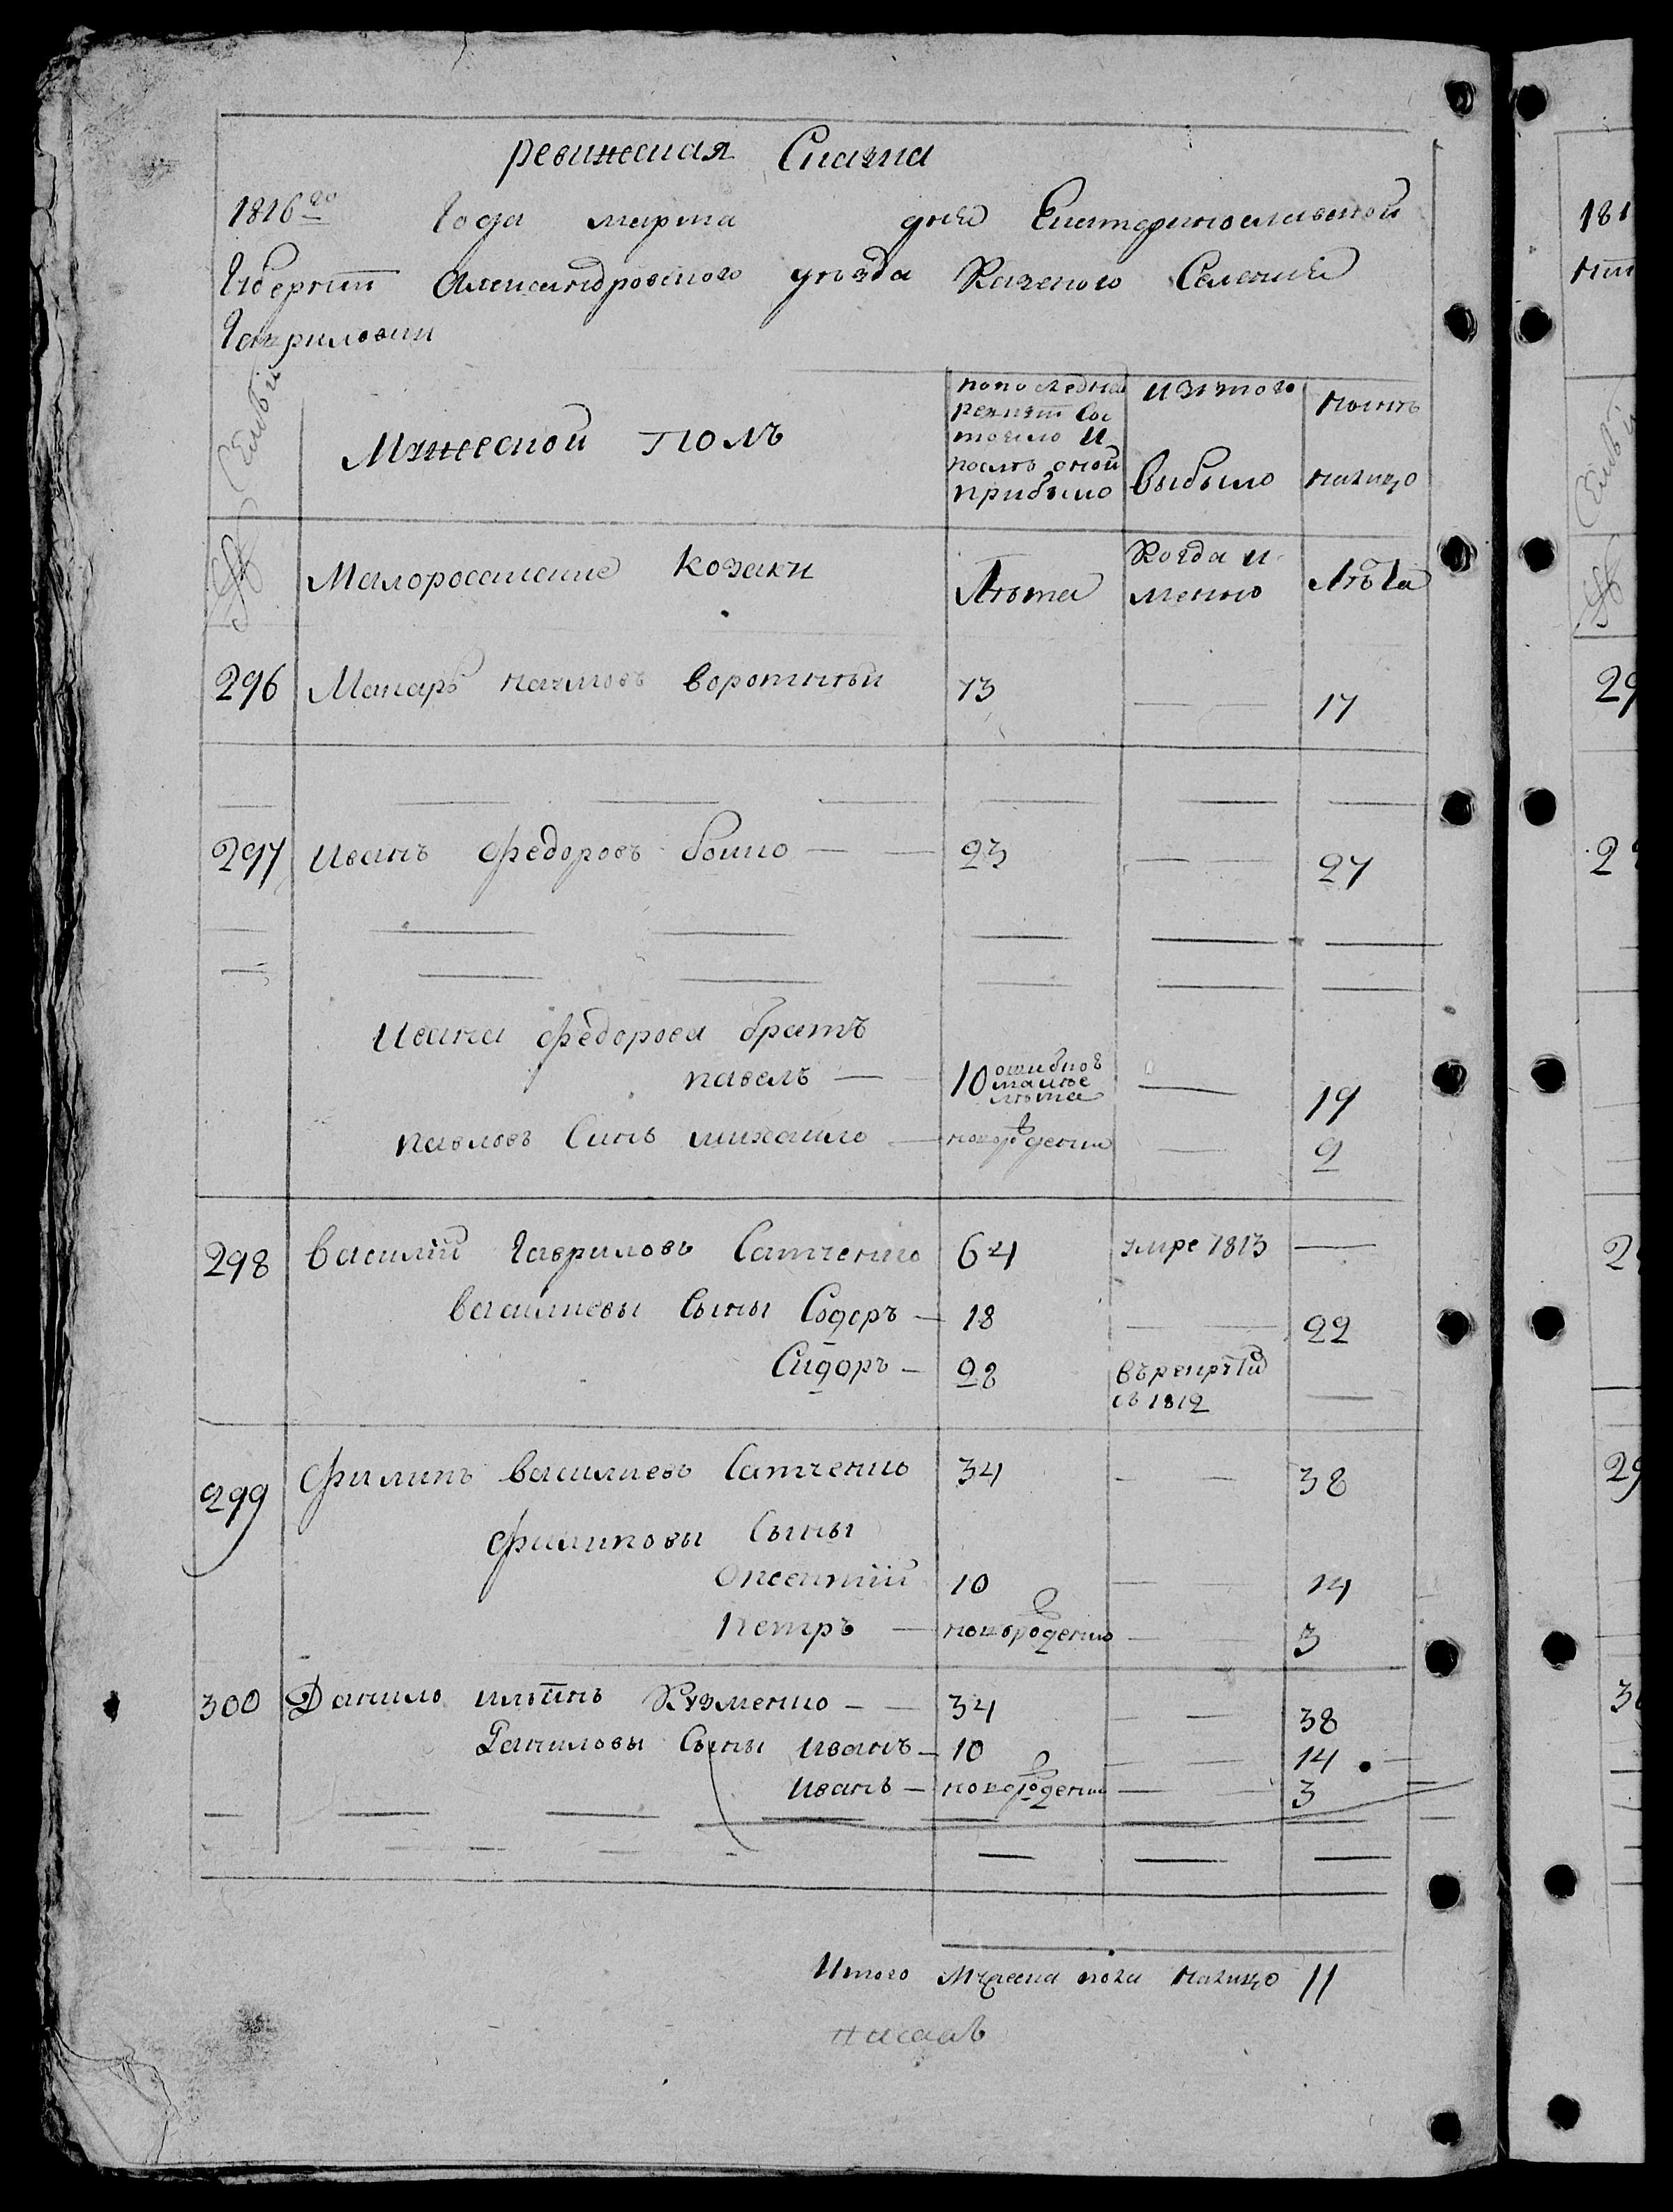 ревижская Сказка
1816го Года марта дня Екатеринославской
Губернии Александровского уезда Казеного Селения
Гавриловки
№ Семьи
Мужеской полъ
попоследней
ревизии сос
тояло и
после оной
прибыло
изътого
выбыло
ныне
налицо
Малороссиские козаки
Лѣта
Когда и
менно
Лѣта
296 Макаръ воротный 13 — — 17
297 иванъ федоровъ бойко — — 23 — — 27
ивана федорова братъ
павелъ — 10 ошибкой — 19
лѣта
павловъ Синъ михайло — новорожденъ — 2
298 василий гавриловъ Сатченко 64 умре 1813 —
василиевы Сыны Содоръ — 18 — — 22
Сидоръ — 28 въ рекруты —
съ 1812
299 филипъ василиевъ Сатченко 34 — — 38
филиповы Сыны
Оксентий 10 — — 14
петръ — новорожденъ — — 3
300 Данило илиинъ Кузменко — — 34 — — 38
Даниловы Сыны иванъ — 10 — — 14
иванъ — новорожденъ — — 3
Итого мужеска пола налицо 11